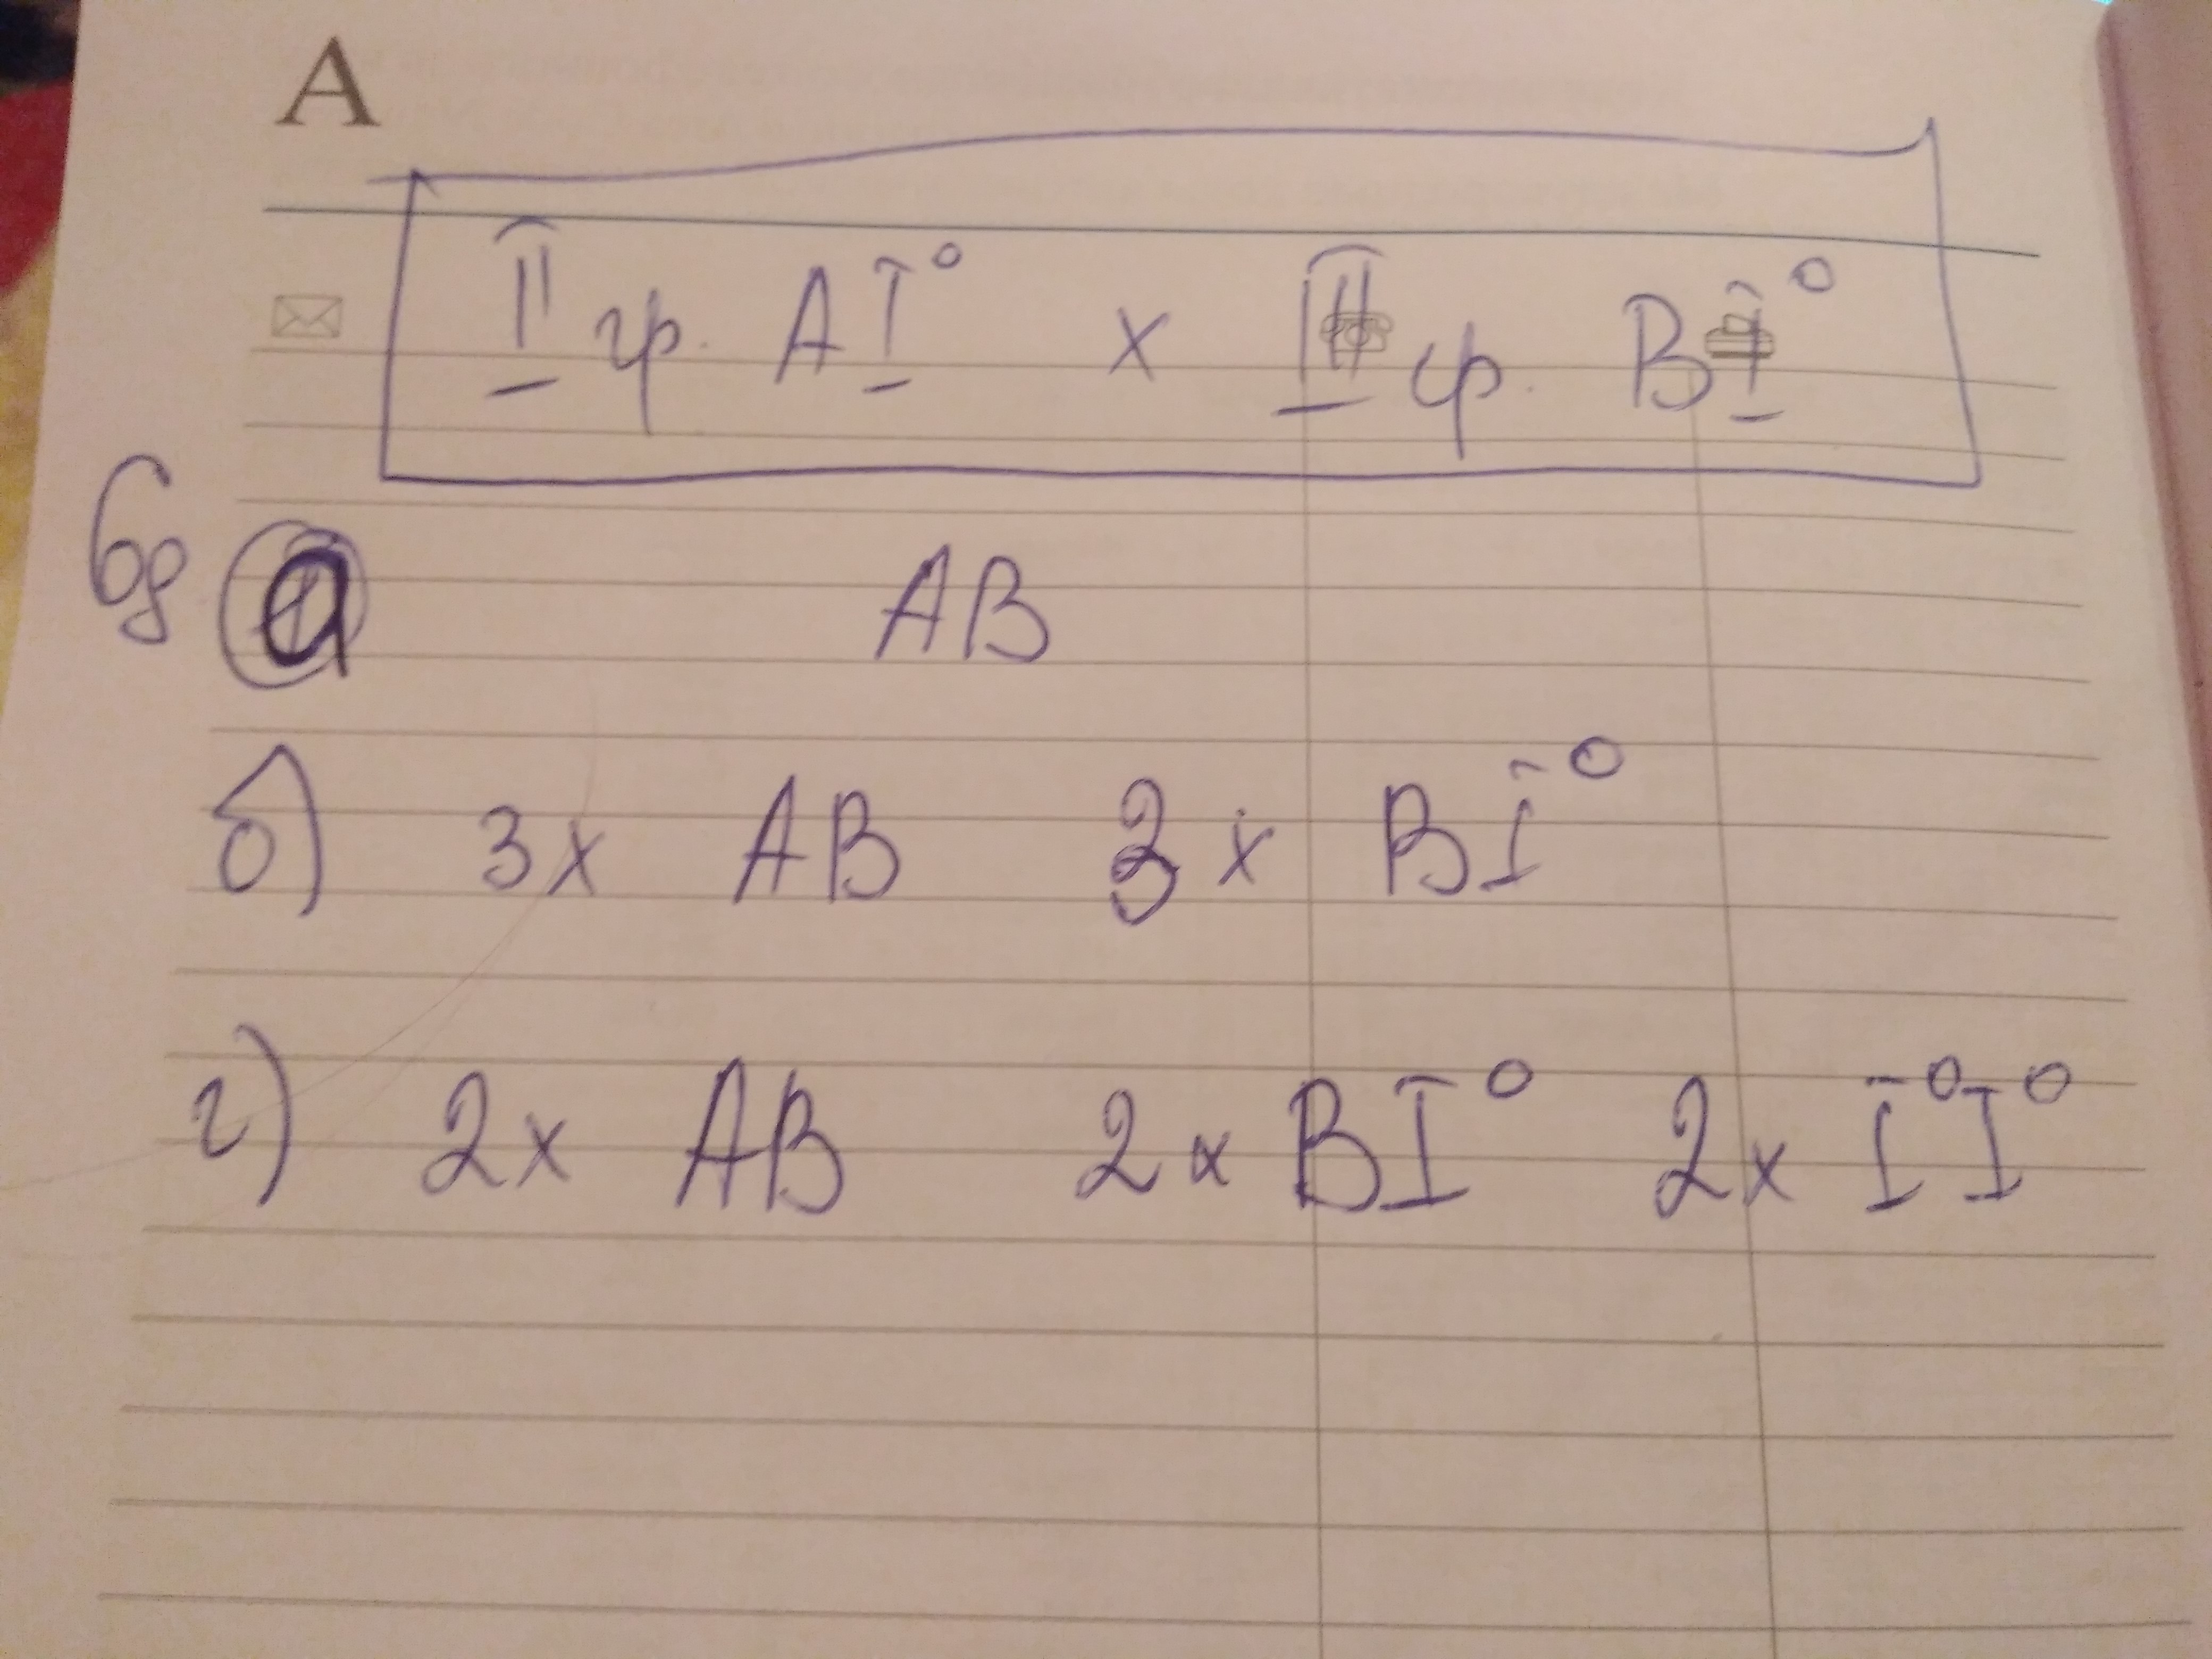 A
II гр. AI° x III гр. BI°
6д а AB
б) 3x AB 3x BI°
г) 2x AB 2x BI° 2x I°I°